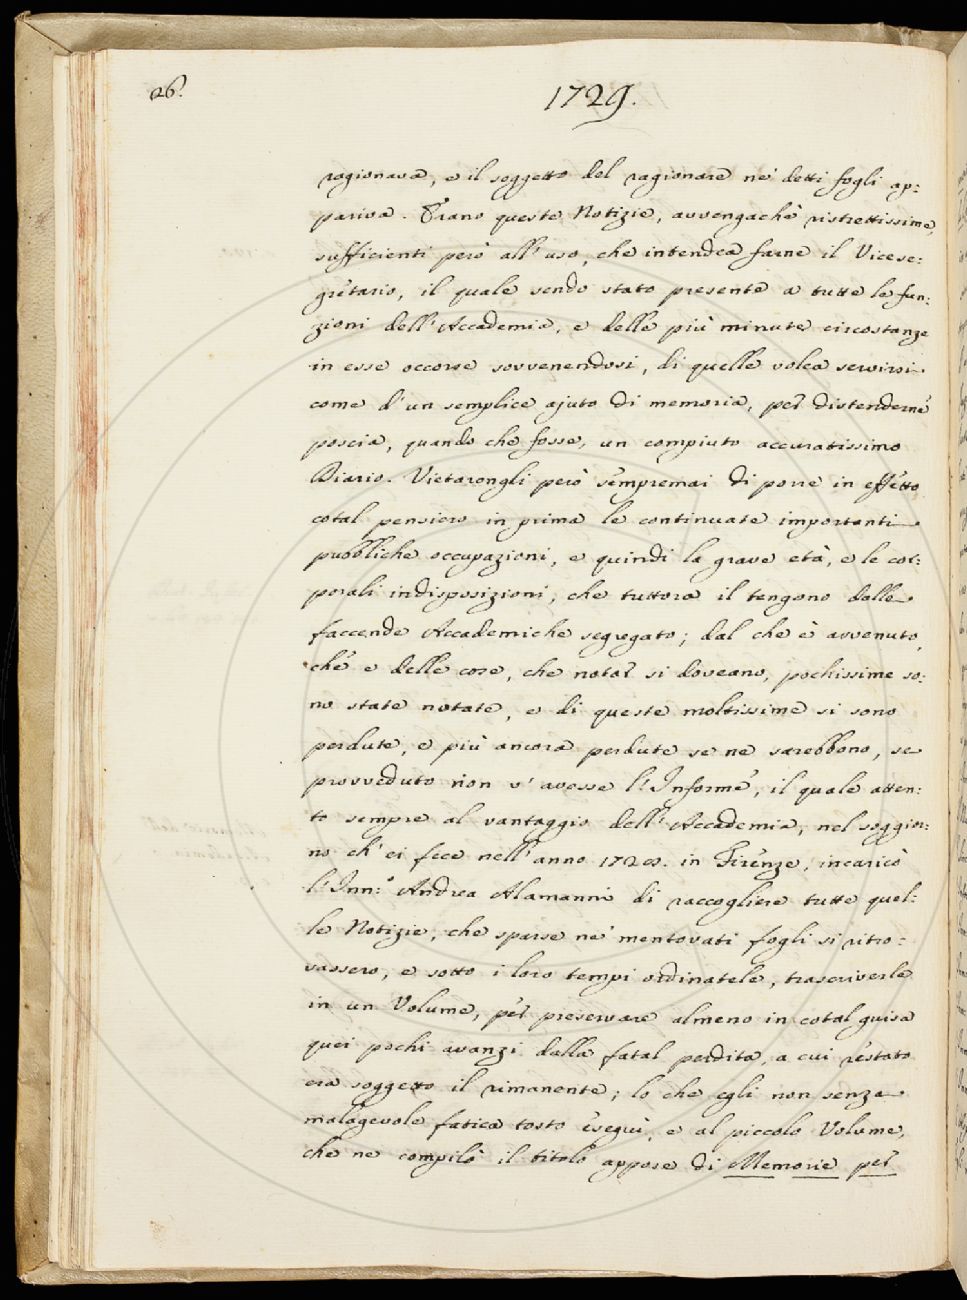 26.
1729.
ragionava, e il soggetto del ragionare ne' detti fogli ap:
pariva. Erano queste Notizie, avvengachè ristrettissime,
sufficienti però all' uso, che intendea farne il Vicese:
gretario, il quale sendo stato presente a tutte le fun:
zioni dell' Accademia, e delle più minute circostanze
in esse occorse sovvenendosi, di quelle volea servirsi
come d' un semplice ajuto di memoria, per distenderne
poscia, quando che fosse, un compiuto accuratissimo
Diario. Vietarongli però sempremai di porre in effetto
cotal pensiero in prima le continuate importanti
pubbliche occupazioni, e quindi la grave età, e le cor:
porali indisposizioni, che tuttora il tengono dalle
faccende Accademiche segregato; dal che è avvenuto,
che e delle cose, che notar si doveano, pochissime so:
no state notate, e di queste moltissime si sono
perdute, e più ancora perdute se ne sarebbono, se
provveduto non v' avesse l' Informe, il quale atten:
to sempre al vantaggio dell' Accademia, nel soggior:
no ch' ei fece nell' anno 1728. in Firenze, incaricò
l' Inn.° Andrea Alamanni di raccogliere tutte quel:
le Notizie, che sparse ne' mentovati fogli si ritro:
vassero, e sotto i loro tempi ordinatele, trascriverle
in un Volume, per preservare almeno in cotal guisa
quei pochi avanzi dalla fatal perdita, a cui restato
era soggetto il rimanente; lo che egli non senza
malagevole fatica tosto eseguì, e al piccolo Volume,
che ne compilò il titolo appose di Memorie per